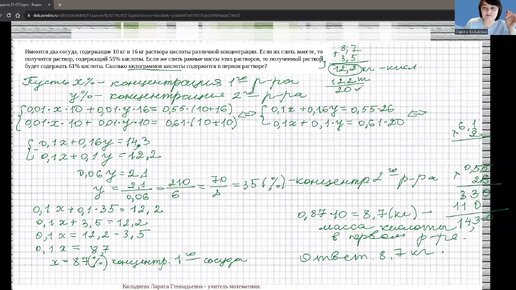 Имеются два сосуда, содержащие 10 кг и 16 кг раствора кислоты различной концентрации. Если их слить вместе, то
получится раствор, содержащий 55% кислоты. Если же слить равные массы этих растворов, то полученный раствор
будет содержать 61% кислоты. Сколько килограммов кислоты содержится в первом растворе?
8,7
+ 3,5
12,2 кг - кисл.
12,2
20
Пусть x% - концентрация 1го р-ра
y% - концентрация 2го р-ра
0,01·x·10 + 0,01·y·16 = 0,55·(10+16)
0,01·x·10 + 0,01·y·10 = 0,61·(10+10)
0,1x + 0,16y = 0,55·26
0,1x + 0,1·y = 0,61·20
-0,1x + 0,16y = 14,3
0,1x + 0,1y = 12,2
0,06y = 2,1
y = 2,1/0,06 = 210/6 = 70/2 = 35(%) - концентр. 2го р-ра
0,1x + 0,1·35 = 12,2
0,1x + 3,5 = 12,2
0,1x = 12,2 - 3,5
0,1x = 8,7
x = 87(%) концентр. 1го сосуда
0,87·10 = 8,7(кг) -
масса кислоты
в первом р-ре.
Ответ. 8,7 кг.
330
110
14,3
Кильдяева Лариса Геннадьевна - учитель математики.